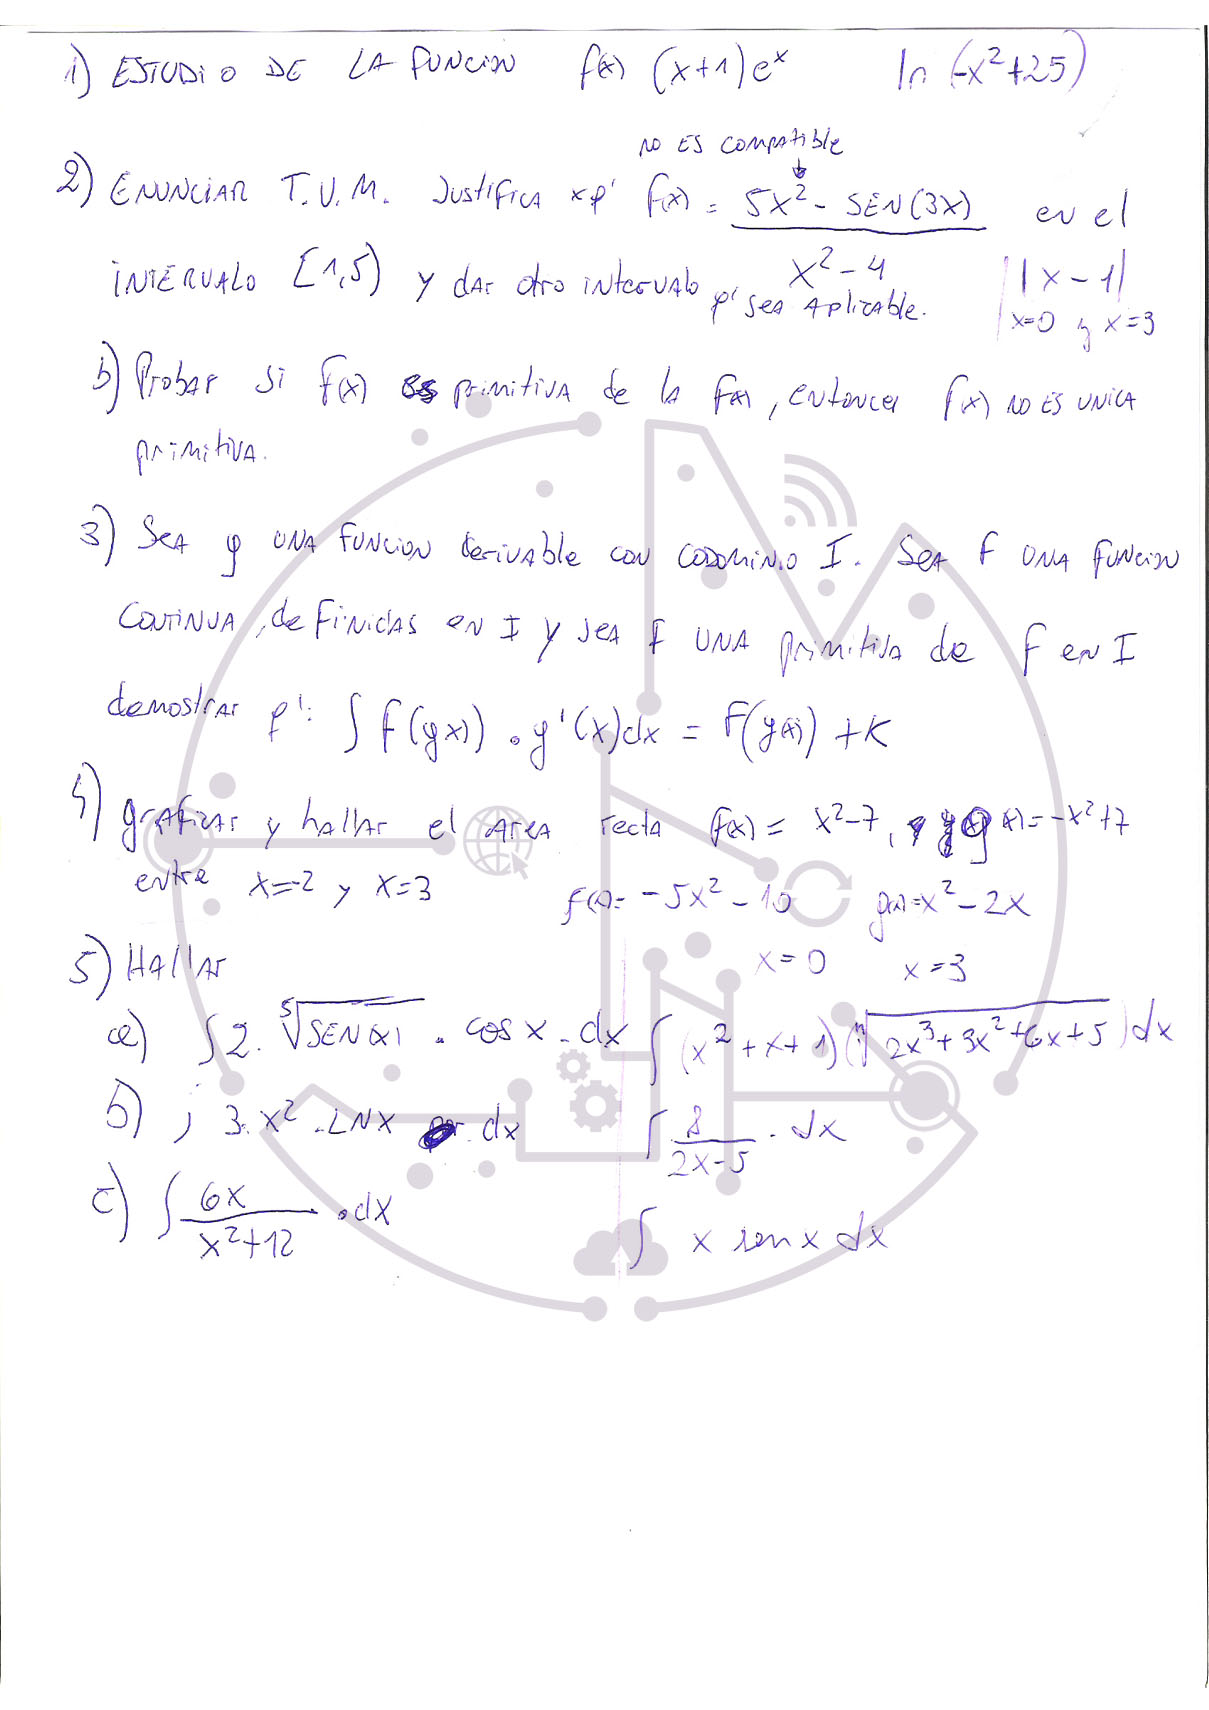 1) ESTUDIO DE LA FUNCION f(x) (x+1)e^x ln(-x²+25)
NO ES COMPATIBLE
2) ENUNCIAR T.V.M. JUSTIFICA xq' f(x) = (5x² - SEN(3x))/(x²-4) en el
INTERVALO [1,5) y dar otro intervalo q' sea Aplicable. ||x-1|
x=0 y x=3
b) Probar si f(x) es primitiva de la f(x), entonces f(x) NO ES UNICA
primitiva.
3) Sea g UNA FUNCION derivable con CODOMINIO I. Sea F UNA FUNCION
CONTINUA, definidas en I y sea F UNA primitiva de F en I
demostrar q': ∫ F(g(x)) . g'(x)dx = F(g(x)) + K
4) graficar y hallar el area recta f(x) = x²-7, y g(x) = -x²+7
entre x=-2 y x=3 f(x) = -5x² - 10 g(x) = x² - 2x
x=0 x=3
5) HALLAR
a) ∫ 2. ⁵√SEN(x) . cos x . dx ∫ (x²+x+1)(ⁿ√2x³+3x²+6x+5) dx
b) ∫ 3.x² . LNX . dx ∫ 8/(2x-5) . dx
c) ∫ 6x/(x²+12) . dx ∫ x sen x dx